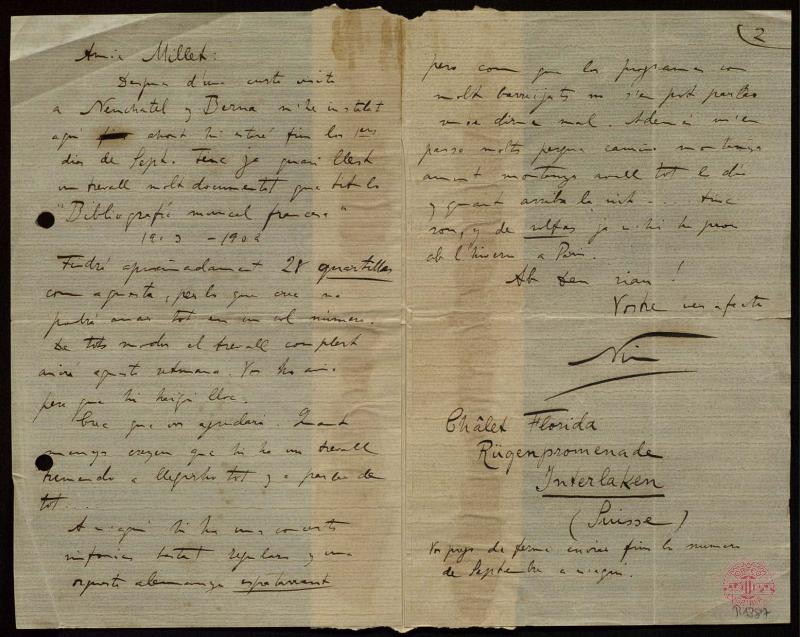 Amic Millet:
Despres d'una curta visita
a Neuchatel y Berna m'he instalat
aqui ahont hi estaré fins los pers
dias de Sept. Tinc ja quasi llest
un travall molt documentat que titolo
"Bibliografía musical francesa"
1903 – 1908
Tindré aproximadament 28 quartillas
com aquesta, per lo que crec no
podrá anar tot en un sol número.
De tots modos el travall complert
aniré aquest setmana. Vos ho
pera que hi haigui lloc.
Crec que vos agradará. Quant
menys creyem que hi ha un travall
tremendo a llegirho tot y a parlar de
tot...
A n'aquí hi ha uns concerts
sinfonics bastat regulars y una
orquesta alemanya
2
pero com que los programas son
molt barrejats no s'en pot parlar
ni dirne mal. Ademés m'en
passo molts perque camino montanya
amunt montanya avall tot lo dia
y quant arriba la nit... tinc
son, y de solfas ja n'hi ha prou
ab l'hivern a Paris.
Ab Deu siau!
Vostre ver afecte
Nin
Châlet Florida
Rügenpromenade
Interlaken
(Suisse)
Vos prego de ferme enviar fins lo numero
de Septembre a n'aquí.